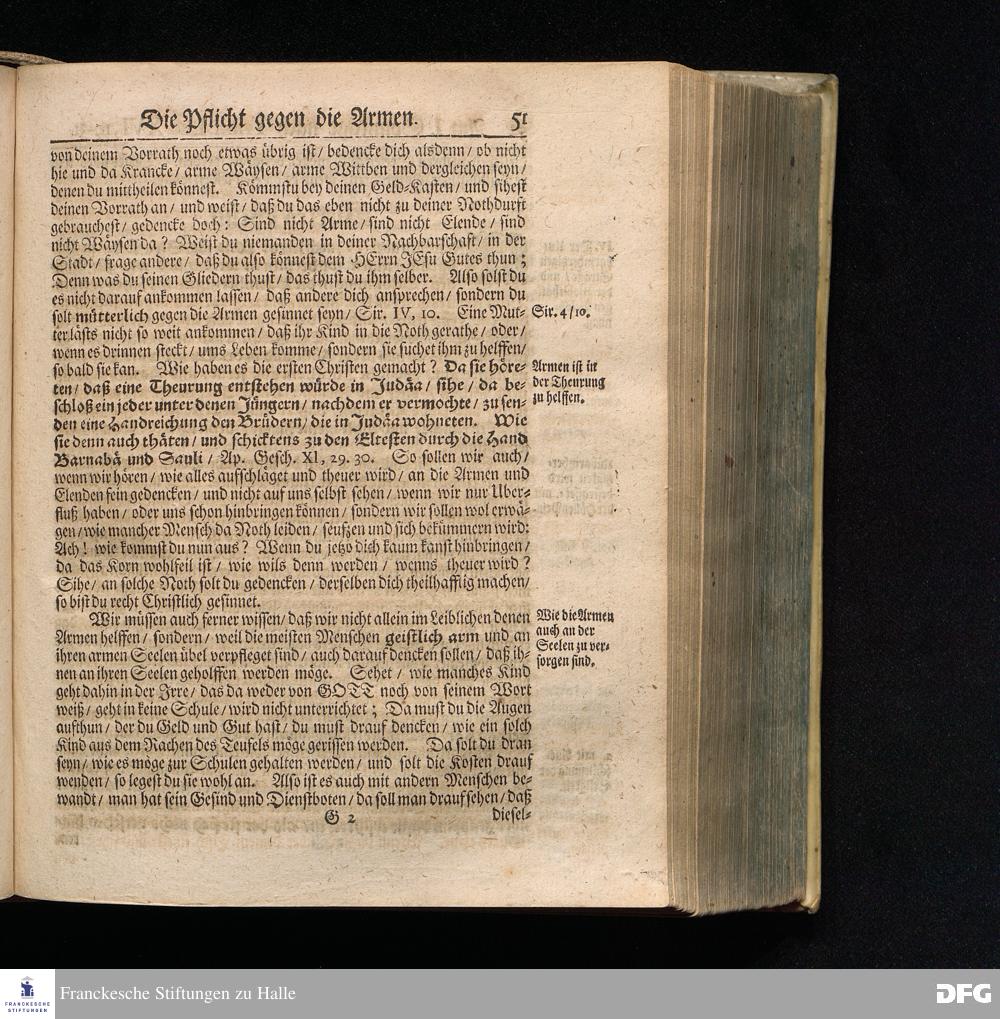 Die Pflicht gegen die Armen. 51
von deinem Vorrath noch etwas übrig ist/ bedencke dich alsdenn/ ob nicht
hie und da Krancke/ arme Wäysen/ arme Wittben und dergleichen seyn/
denen du mittheilen könnest. Kömmstu bey deinen Geld-Kasten/ und sihest
deinen Vorrath an/ und weist/ daß du das eben nicht zu deiner Nothdurft
gebrauchest/ gedencke doch: Sind nicht Arme/ sind nicht Elende/ sind
nicht Wäysen da? Weist du niemanden in deiner Nachbarschaft/ in der
Stadt/ frage andere/ daß du also könnest dem HErrn JEsu Gutes thun;
Denn was du seinen Gliedern thust/ das thust du ihm selber. Also solst du
es nicht darauf ankommen lassen/ daß andere dich ansprechen/ sondern du
solt mütterlich gegen die Armen gesinnet seyn/ Sir. IV, 10. Eine Mut-
Sir. 4/10.
ter lästs nicht so weit ankommen/ daß ihr Kind in die Noth gerathe/ oder/
wenn es drinnen steckt/ ums Leben komme/ sondern sie suchet ihm zu helffen/
so bald sie kan. Wie haben es die ersten Christen gemacht? Da sie höre-
Armen ist in
der Theurung
zu helffen.
ten/ daß eine Theurung entstehen würde in Judäa/ sihe/ da be-
schloß ein jeder unter denen Jüngern/ nachdem er vermochte/ zu sen-
den eine Handreichung den Brüdern/ die in Judäa wohneten. Wie
sie denn auch thäten/ und schicktens zu den Eltesten durch die Hand
Barnabä und Sauli/ Ap. Gesch. XI, 29. 30. So sollen wir auch/
wenn wir hören/ wie alles aufschläget und theuer wird/ an die Armen und
Elenden fein gedencken/ und nicht auf uns selbst sehen/ wenn wir nur Uber-
fluß haben/ oder uns schon hinbringen können/ sondern wir sollen wol erwä-
gen/ wie mancher Mensch da Noth leiden/ seufzen und sich bekümmern wird:
Ach! wie kommst du nun aus? Wenn du jetzo dich kaum kanst hinbringen/
da das Korn wohlfeil ist/ wie wils denn werden/ wenns theuer wird?
Sihe/ an solche Noth solt du gedencken/ derselben dich theilhafftig machen/
so bist du recht Christlich gesinnet.
Wir müssen auch ferner wissen/ daß wir nicht allein im Leiblichen denen
Wie die Armen
auch an der
Seelen zu ver-
sorgen sind.
Armen helffen/ sondern/ weil die meisten Menschen geistlich arm und an
ihren armen Seelen übel verpfleget sind/ auch darauf dencken sollen/ daß ih-
nen an ihren Seelen geholffen werden möge. Sehet/ wie manches Kind
geht dahin in der Irre/ das da weder von GOTT noch von seinem Wort
weiß/ geht in keine Schule/ wird nicht unterrichtet; Da must du die Augen
aufthun/ der du Geld und Gut hast/ du must drauf dencken/ wie ein solch
Kind aus dem Rachen des Teufels möge gerissen werden. Da solt du dran
seyn/ wie es möge zur Schulen gehalten werden/ und solt die Kosten drauf
wenden/ so legest du sie wohl an. Also ist es auch mit andern Menschen be-
wandt/ man hat sein Gesind und Dienstboten/ da soll man drauf sehen/ daß
G 2 diesel-
FRANCKESCHE
STIFTUNGEN
Franckesche Stiftungen zu Halle
DFG